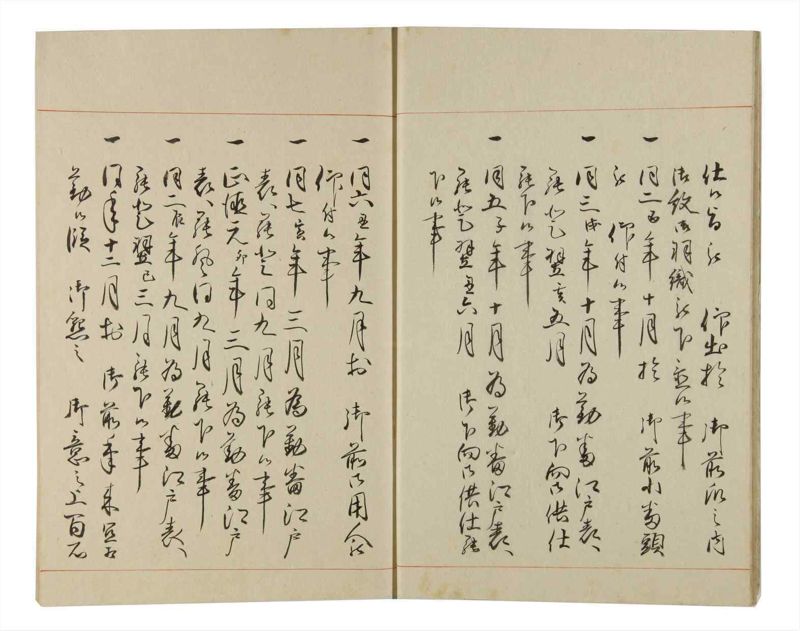 仕候旨被 仰出於 御前頂之内
御紋御羽織被下置候事
一 同二酉年十月於 御前小番頭
被 仰付候事
一 同三戌年十月為勤番江戸表へ
罷登翌亥五月 御下向御供仕
罷下候事
一 同五子年十月為勤番江戸表へ
罷登翌丑六月 御下向御供仕罷
下候事
一 同六丑年九月於 御前御用人
仰付候事
一 同七亥年三月為勤番江戸
表へ罷登同九月罷下候事
一 正徳元卯年三月為勤番江戸
表へ罷登同九月罷下候事
一 同二辰年九月為勤番江戸表へ
罷登翌巳三月罷下候事
一 同年十二月於 御前年来宜相
勤候段 御懇之 御意之上百石